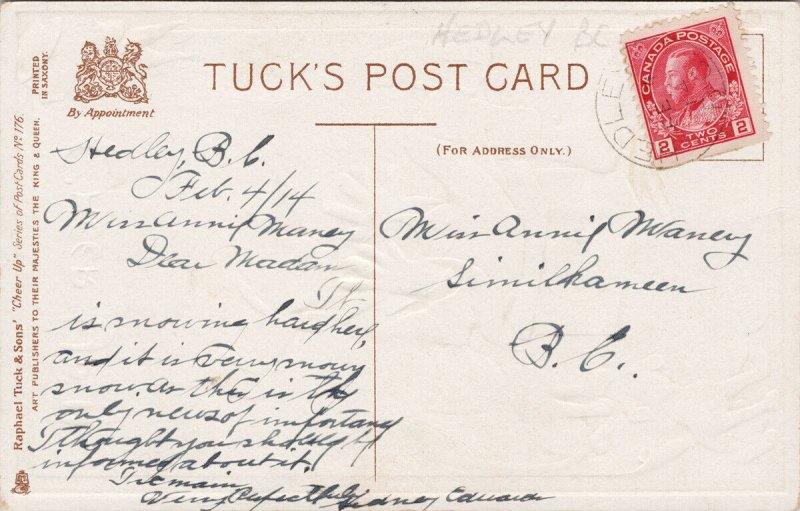 HEDLEY BC
TUCK'S POST CARD
By Appointment
PRINTED
IN SAXONY.
Raphael Tuck & Sons' "Cheer Up" Series of Post Cards No 176.
ART PUBLISHERS TO THEIR MAJESTIES THE KING & QUEEN.
(FOR ADDRESS ONLY.)
CANADA POSTAGE
2 TWO CENTS 2
HEDLE
Hedley, B.C.
Feb. 4/14
Miss Annie Maney
Dear Madam
It
is snowing hard here,
and it is very snowy
snow. As this is the
only news of importance
I thought you should be
informed about it.
I remain
Very
Sidney Edwards
Miss Annie
Similkameen
B.C.